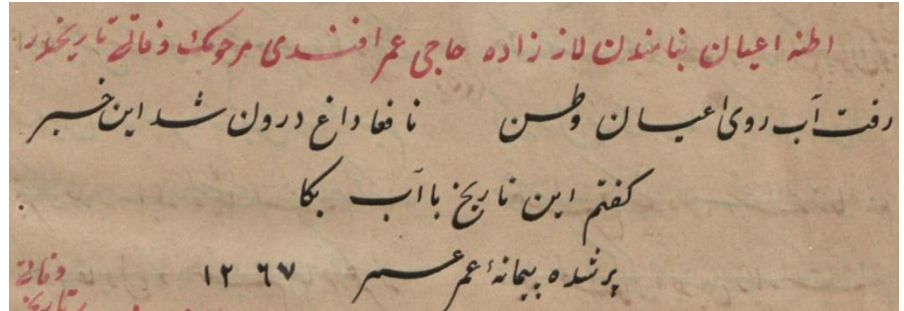 اطنه اعیان بنامندن لاز زاده حاجی عمر افندی مرحومك وفاتی تاریخیدر
رفت آب روی اعیان وطن نافعا داغ درون شد این خبر
كفتم این تاریخ با آب بكا
پر شده پیمانهٔ عمر عمر ١٢٦٧
وفاتی
تاریخ